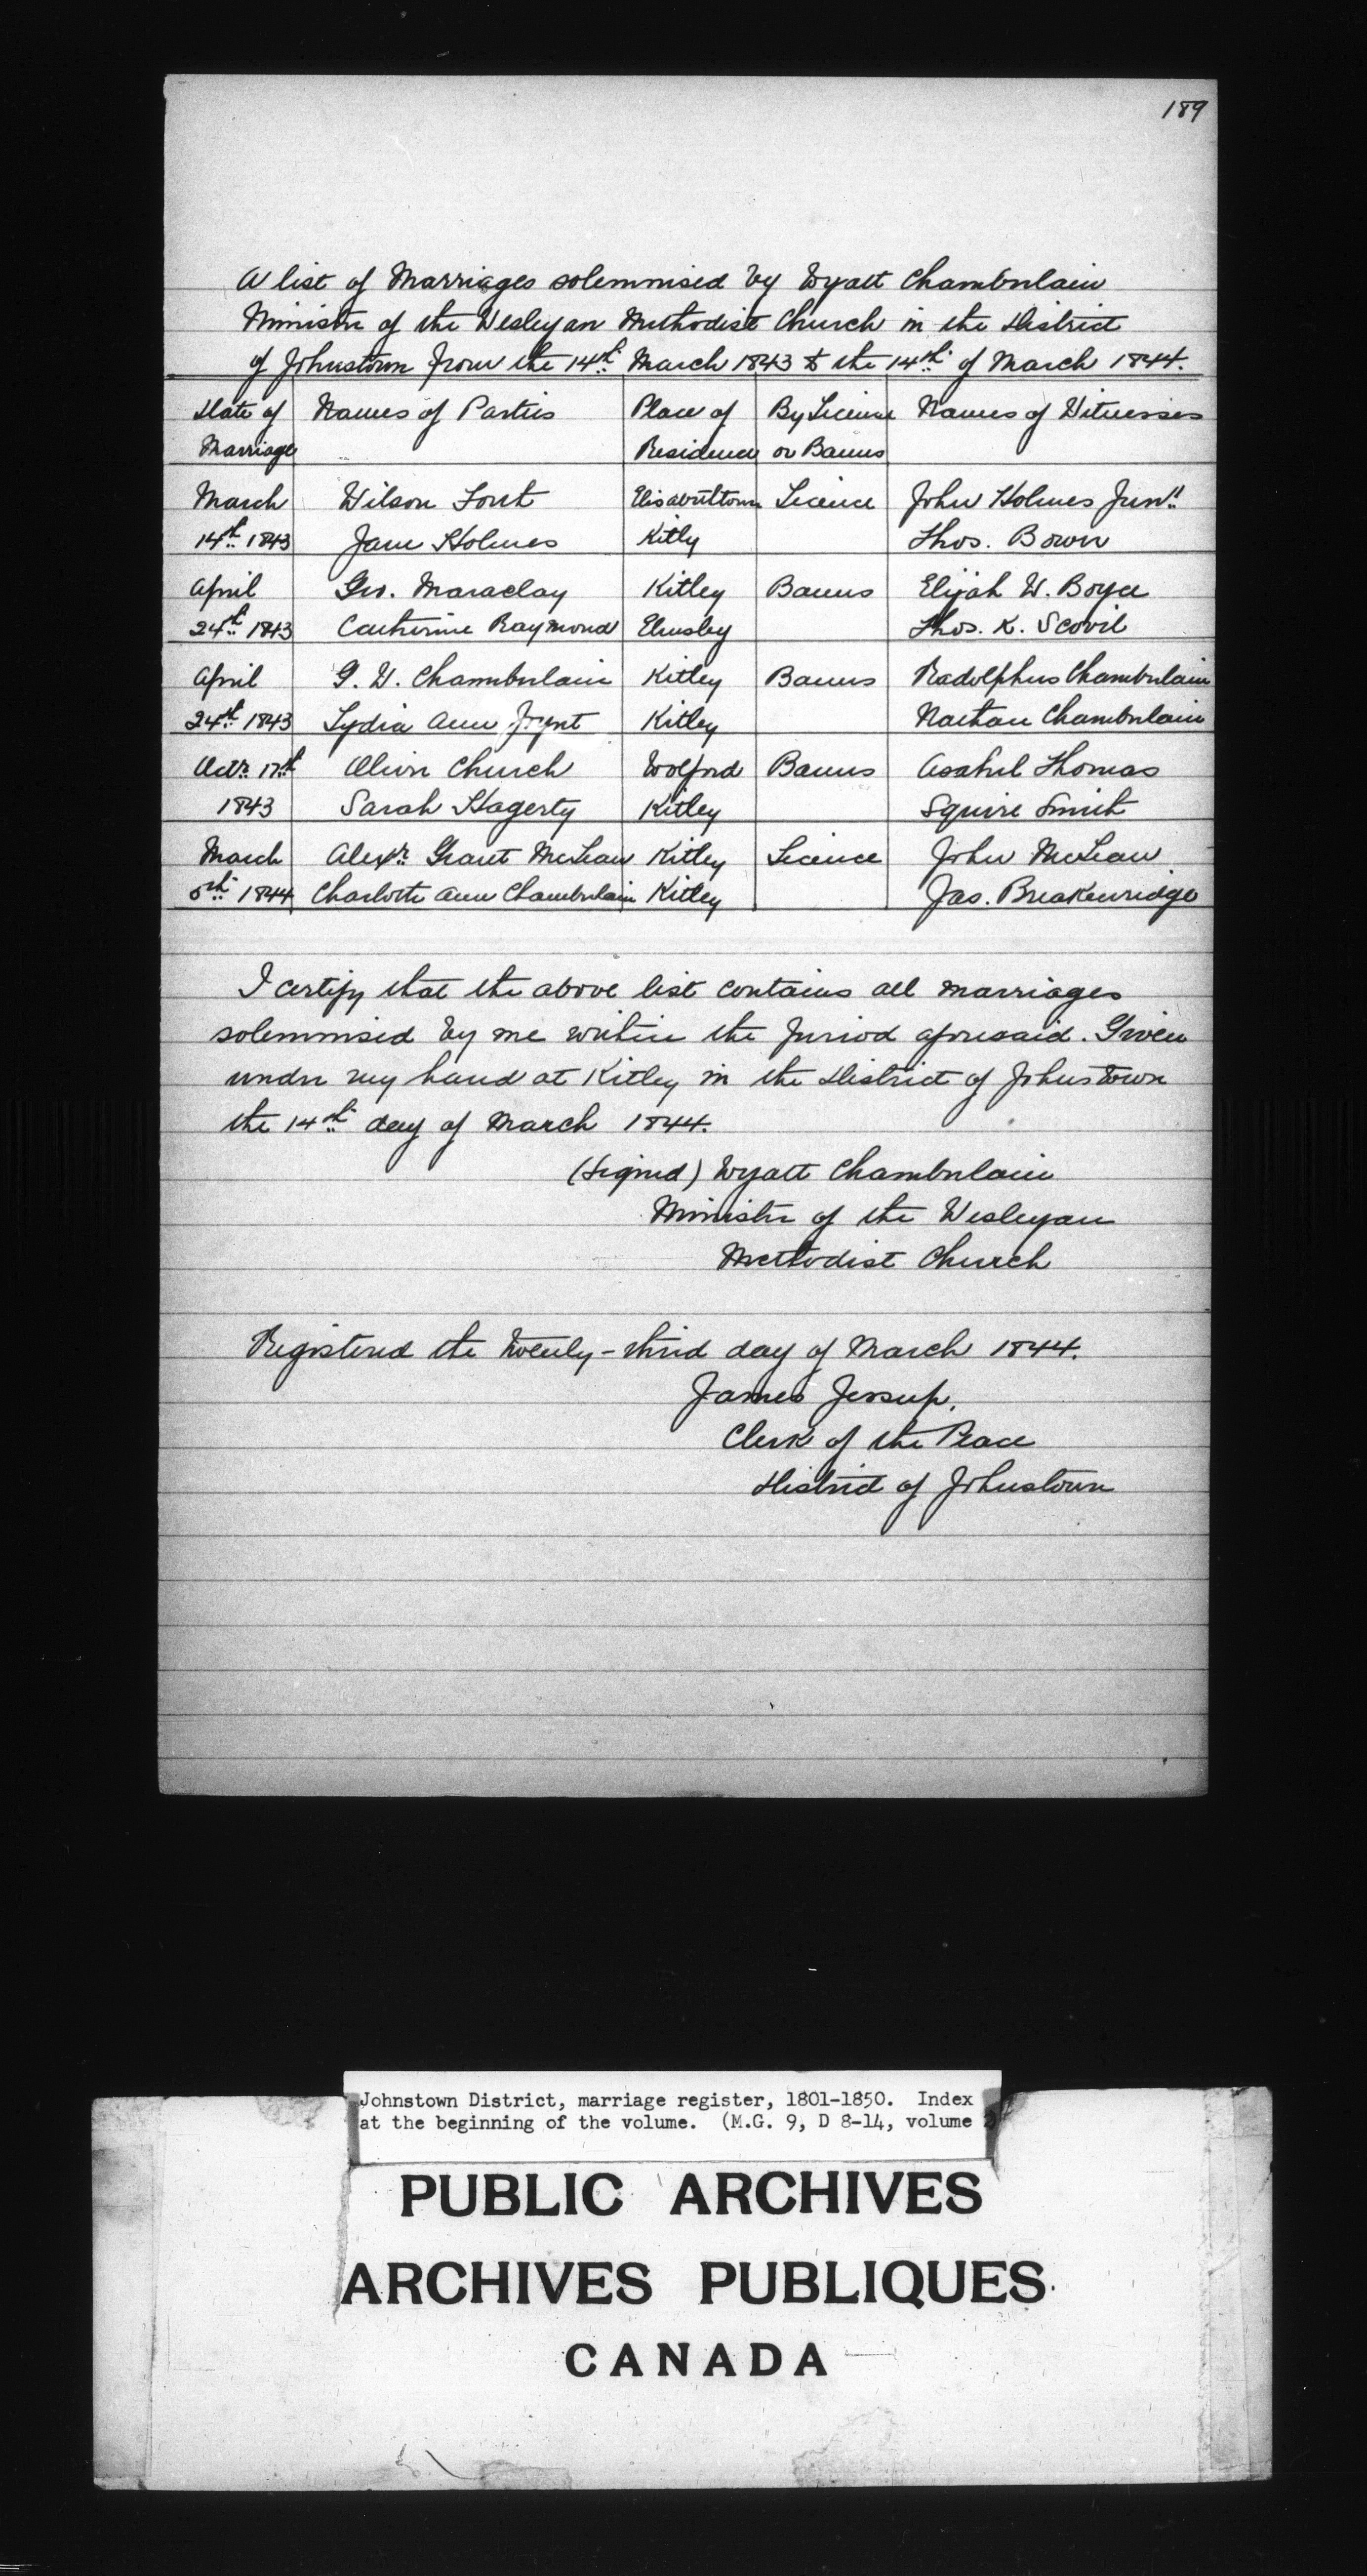 189
A list of Marriages solemnised by Wyatt Chamberlain
Minister of the Wesleyan Methodist Church in the District
of Johnstown from the 14th March 1843 to the 14th of March 1844.
Date of Names of Parties Place of By Licence Names of Witnesses
Marriage Residence or Banns
March Wilson Elisabethtown Licence John Holmes Junr
14th 1843 Jane Holmes Kitley Thos. Bown
April Geo. Maraclay Kitley Banns Elijah W. Boyce
24th 1843 Catherine Raymond Elmsley Thos. K. Scovil
April G. W. Chamberlain Kitley Banns Radolphus Chamberlain
24th 1843 Lydia Ann Kitley Nathan Chamberlain
Octr 17th Oliver Church Wolford Banns Asahel Thomas
1843 Sarah Hagerty Kitley Squire Smith
March Alexr Grant McLean Kitley Licence John McLean
5th 1844 Charlotte Ann Chamberlain Kitley Jas. Breakenridge
I certify that the above list contains all marriages
solemnised by me within the period aforesaid. Given
under my hand at Kitley in the District of Johnstown
the 14th day of March 1844.
(Signed) Wyatt Chamberlain
Minister of the Wesleyan
Methodist Church
Registered the twenty-third day of March 1844.
James Jessup.
Clerk of the Peace
District of Johnstown
Johnstown District, marriage register, 1801-1850. Index
at the beginning of the volume. (M.G. 9, D 8-14, volume
PUBLIC ARCHIVES
ARCHIVES PUBLIQUES
CANADA